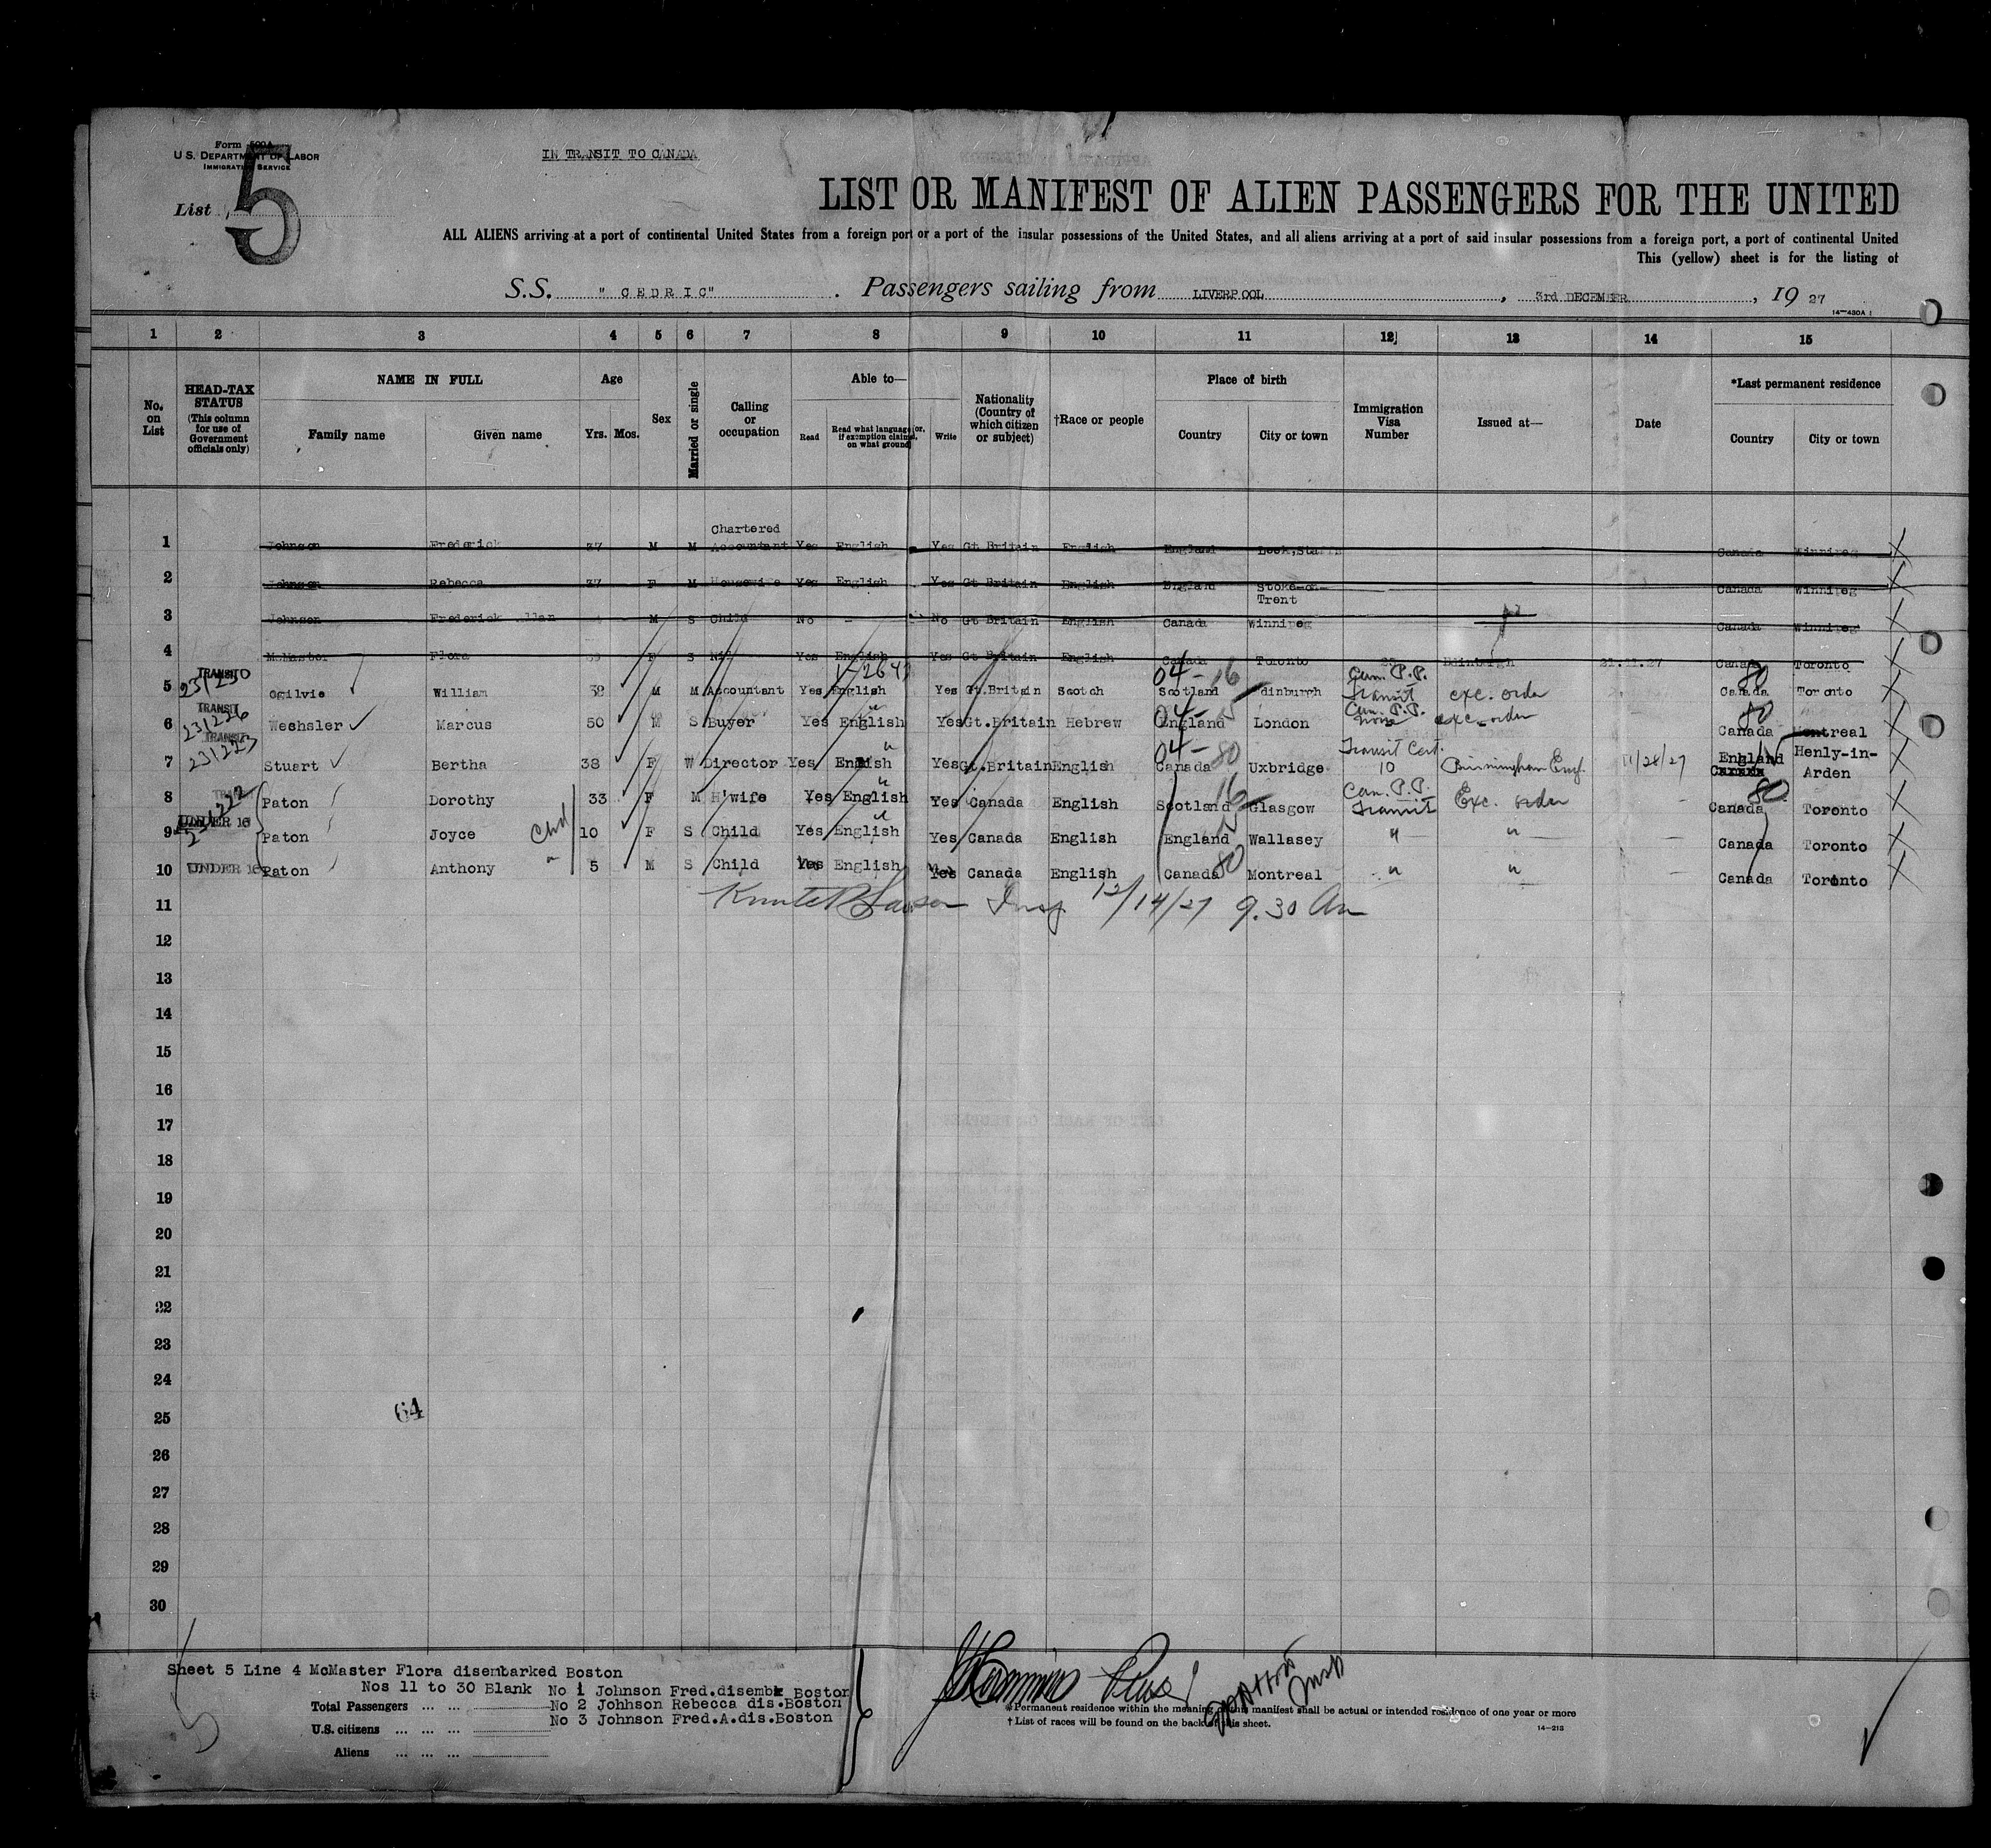 Form 500A
U.S. DEPARTMENT OF LABOR
IMMIGRATION SERVICE
IN TRANSIT TO CANADA
List 5
LIST OR MANIFEST OF ALIEN PASSENGERS FOR THE UNITED
ALL ALIENS arriving at a port of continental United States from a foreign port or a port of the insular possessions of the United States, and all aliens arriving at a port of said insular possessions from a foreign port, a port of continental United
This (yellow) sheet is for the listing of
S.S. "CEDRIC". Passengers sailing from LIVERPOOL, 3rd DECEMBER, 19 27
14—430A
1 2 3 4 5 6 7 8 9 10 11 12 13 14 15
No. on List
HEAD-TAX STATUS (This column for use of Government officials only)
NAME IN FULL
Family name Given name
Age
Yrs. Mos.
Sex
Married or single
Calling or occupation
Able to—
Read
Read what language (or, if exemption claimed, on what ground)
Write
Nationality (Country of which citizen or subject)
†Race or people
Place of birth
Country City or town
Immigration Visa Number
Issued at—
Date
*Last permanent residence
Country City or town
1 Johnson Frederick 37 M M Chartered Accountant Yes English Yes Gt Britain English England Leek,Staffs Canada Winnipeg
2 Johnson Rebecca 37 F M Housewife Yes English Yes Gt Britain English England Stoke-on-Trent Canada Winnipeg
3 Johnson Frederick Allan M S Child No - No Gt Britain English Canada Winnipeg Canada Winnipeg
4 McMaster Flora F S Nil Yes English Yes Gt Britain English Canada Toronto Edinburgh 21.11.27 Canada Toronto
5 TRANSIT 231230 Ogilvie William 38 M M Accountant Yes English Yes Gt.Britain Scotch 04-16 Scotland Edinburgh Can. P.P. Transit exc. order 80 Canada Toronto
6 TRANSIT 231226 Wechsler Marcus 50 M S Buyer Yes English Yes Gt.Britain Hebrew 04- England London Can. P.P. exc. order 80 Canada Montreal
7 TRANSIT 231223 Stuart Bertha 38 F W Director Yes English Yes Gt.Britain English 04-80 Canada Uxbridge Transit Cert. 10 Birmingham Engl. 11/28/27 England Canada Henly-in-Arden
8 231222 Paton Dorothy 33 F M H'wife Yes English Yes Canada English 16 Scotland Glasgow Can. P.P. Transit Exc. order 80 Canada Toronto
9 UNDER 16 Paton Joyce Chd 10 F S Child Yes English Yes Canada English England Wallasey " " Canada Toronto
10 UNDER 16 Paton Anthony " 5 M S Child Yes English Yes Canada English 80 Canada Montreal " " Canada Toronto
11 12/14/27 9.30 Am
12
13
14
15
16
17
18
19
20
21
22
23
24
25
26
27
28
29
30
64
Sheet 5 Line 4 McMaster Flora disembarked Boston
Nos 11 to 30 Blank No 1 Johnson Fred.disembk Boston
Total Passengers ... ... No 2 Johhson Rebecca dis.Boston
No 3 Johnson Fred.A.dis.Boston
U.S. citizens ... ... ...
Aliens ... ... ...
*Permanent residence within the meaning of this manifest shall be actual or intended residence of one year or more
†List of races will be found on the back of this sheet.
14—213